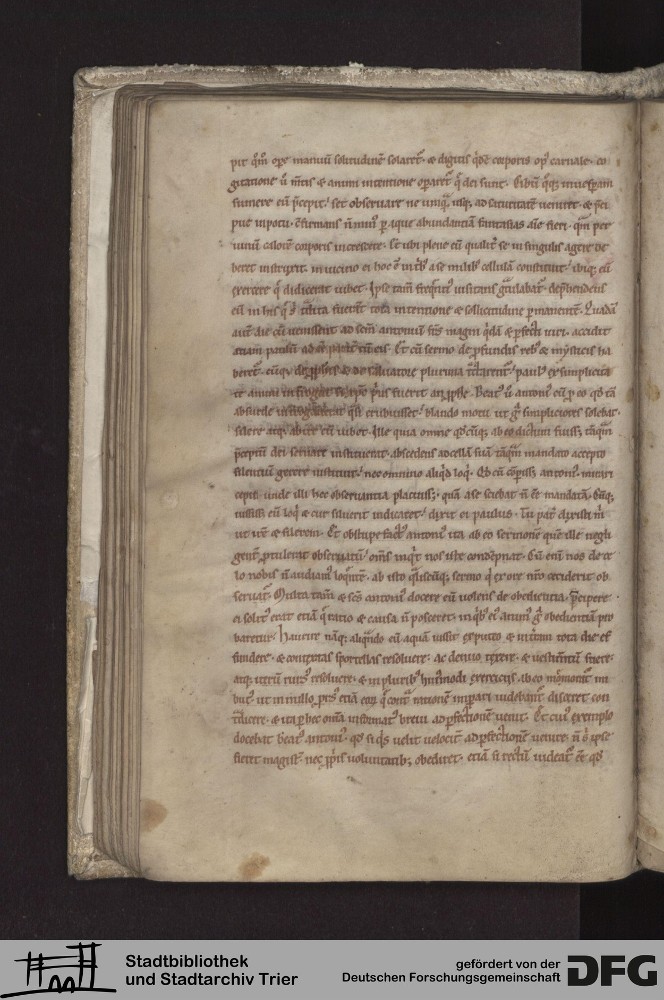 pit qm̄ ope manuū solitudinē solaret̄ · & digitis qͥdē corporis opͥ carnale · co
gitatione ū m̄tis & animi intentione oparet̄ q̄ dei sunt · Cibū qͥq; in uesperam
sumere eū p̄cepit · set obseruare ne unqͣ usq; ad sacietatē ueniret · & p̄ci
pue in potu · firmans ñ minꝰ p aque abundantiā fantasias aīe fieri · qm̄ per
uinū calorē corporis increscere · Et ubi plene eū qualit̄ se in singulis agere de
beret instruxit · in uicino ei hoc ē in trib; a se milib; cellulā constituit · ibiq; eū
exercere q̄ didicerat iubet · Ipse tam̄ freqͥntiꝰ uisitans gͣtulabat̄ · dep̄hendens
eū in his q̄ sibi tradita fuerant tota intentione & sollicitudine permanentē · Quadā
aut̄ die cū uenissent ad scm̄ antoniū frs̄ magni qͥdā & p̄fecti uiri · accidit
etiam paulū adesse cū eis · Et cū sermo de profundis reb; & mysticis ha
beret̄ · cūq; de prophetis & de saluatore plurima tractarent · paulꝰ ex simplicita
te animi interrogat si xpc prius fuerit an prophete · Beatꝰ ū antoniꝰ cū p eo qd tā
absurde interrogauerat qͣsi erubuisset · blando motu ut gͣ simpliciores solebat ·
silere atq; abire eū iubet · Ille quia omne qdcūq; ab eo dictum fuiss; tāqͣm
p̄ceptū dei seruare instituerat · abscedens ad cellā suā tāqͣm mandato accepto
silentiū gerere instituit · nec omnino aliqͥd loqͥ · Qd cū cōpiss; antoniꝰ · mirari
cepit unde illi hec obseruantia placuiss; · quā a se sciebat ñ ēē mandatā · Cūq;
iussiss; eū loqͥ & cur siluerit indicaret · dixit ei paulus · Tu pat̄ dixisti m̄
ut irē & silerem · Et obstupefactꝰ antoniꝰ ita ab eo sermonē quē ille negli
gent̄ protulerat obseruatū · om̄s inqͥt nos iste condēpnat · Cū enī nos de ce
lo nobis ñ audiamꝰ loquente · ab isto qͣliscūq; sermo qͥ ex ore nro ceciderit ob
seruat̄ · Multa tam̄ & scs̄ antoniꝰ docere eū uolens de obedientia · p̄cipere
ei solitꝰ erat etiā q̄ ratio & causa ñ posceret · in qͥb; ei animꝰ gͣ obedientiam pro
baretur · Haurire nāq; aliqͣndo eū aquā iussit ex puteo & in t̄ram tota die ef
fundere · & contextas sportellas resoluere · ac denuo texere · & uestim̄tū suere ·
atq; iterū rursꝰ resoluere · & in plurib; huicemodi exercitiis ab eo imbu
tus · ut in nullo prorsꝰ etiā eorum q̄ contra rationē imperari uidebant̄ disceret con
tradicere · & ita per hec om̄ia informatꝰ breui ad p̄fectionē uenit · Et cuiꝰ exemplo
docebat beatꝰ antoniꝰ · qd si qͥs uelit uelocit̄ ad p̄fectionē uenire ñ sibi ipse
fieret magist̄ · nec propriis uoluntatib; obediret · etiā si rectū uideat̄ ēē qd
Stadtbibliothek
und Stadtarchiv Trier
gefördert von der
Deutschen Forschungsgemeinschaft
DFG